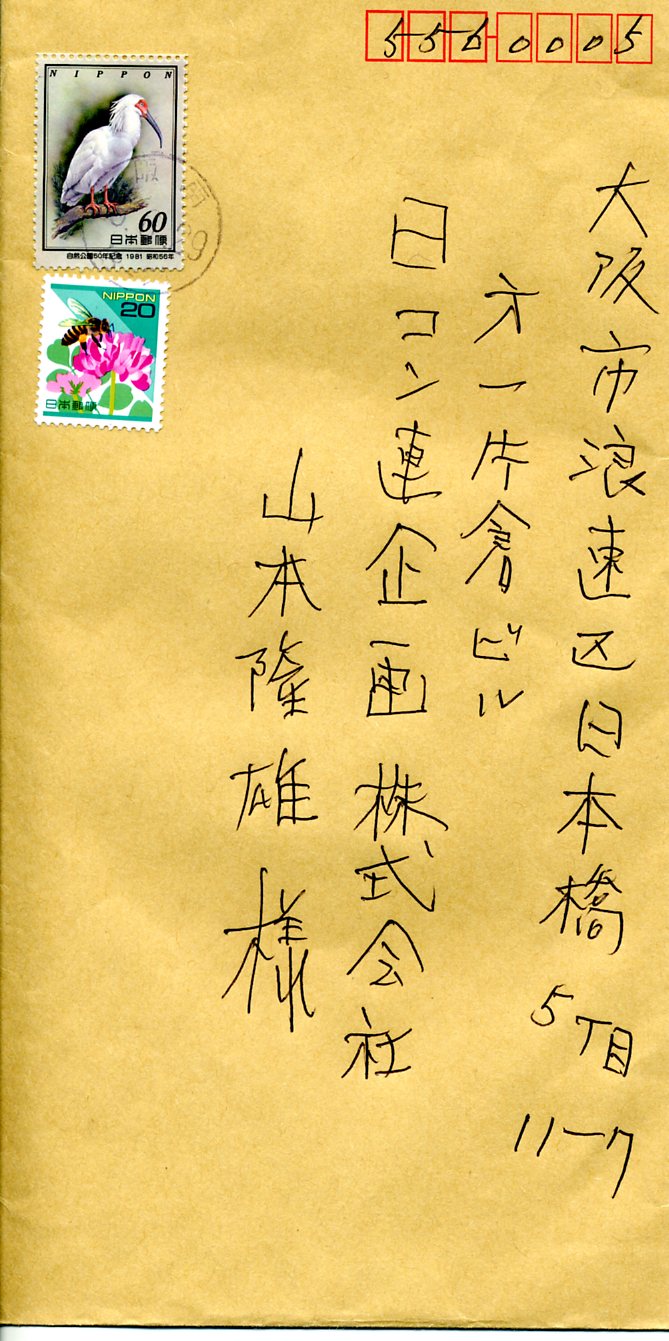 556-0005
大阪市浪速区日本橋5丁目11-7
才一片倉ビル
日コン連企画株式会社
山本隆雄様
NIPPON
60
日本郵便
自然公園50年記念 1981 昭和56年
NIPPON
20
日本郵便